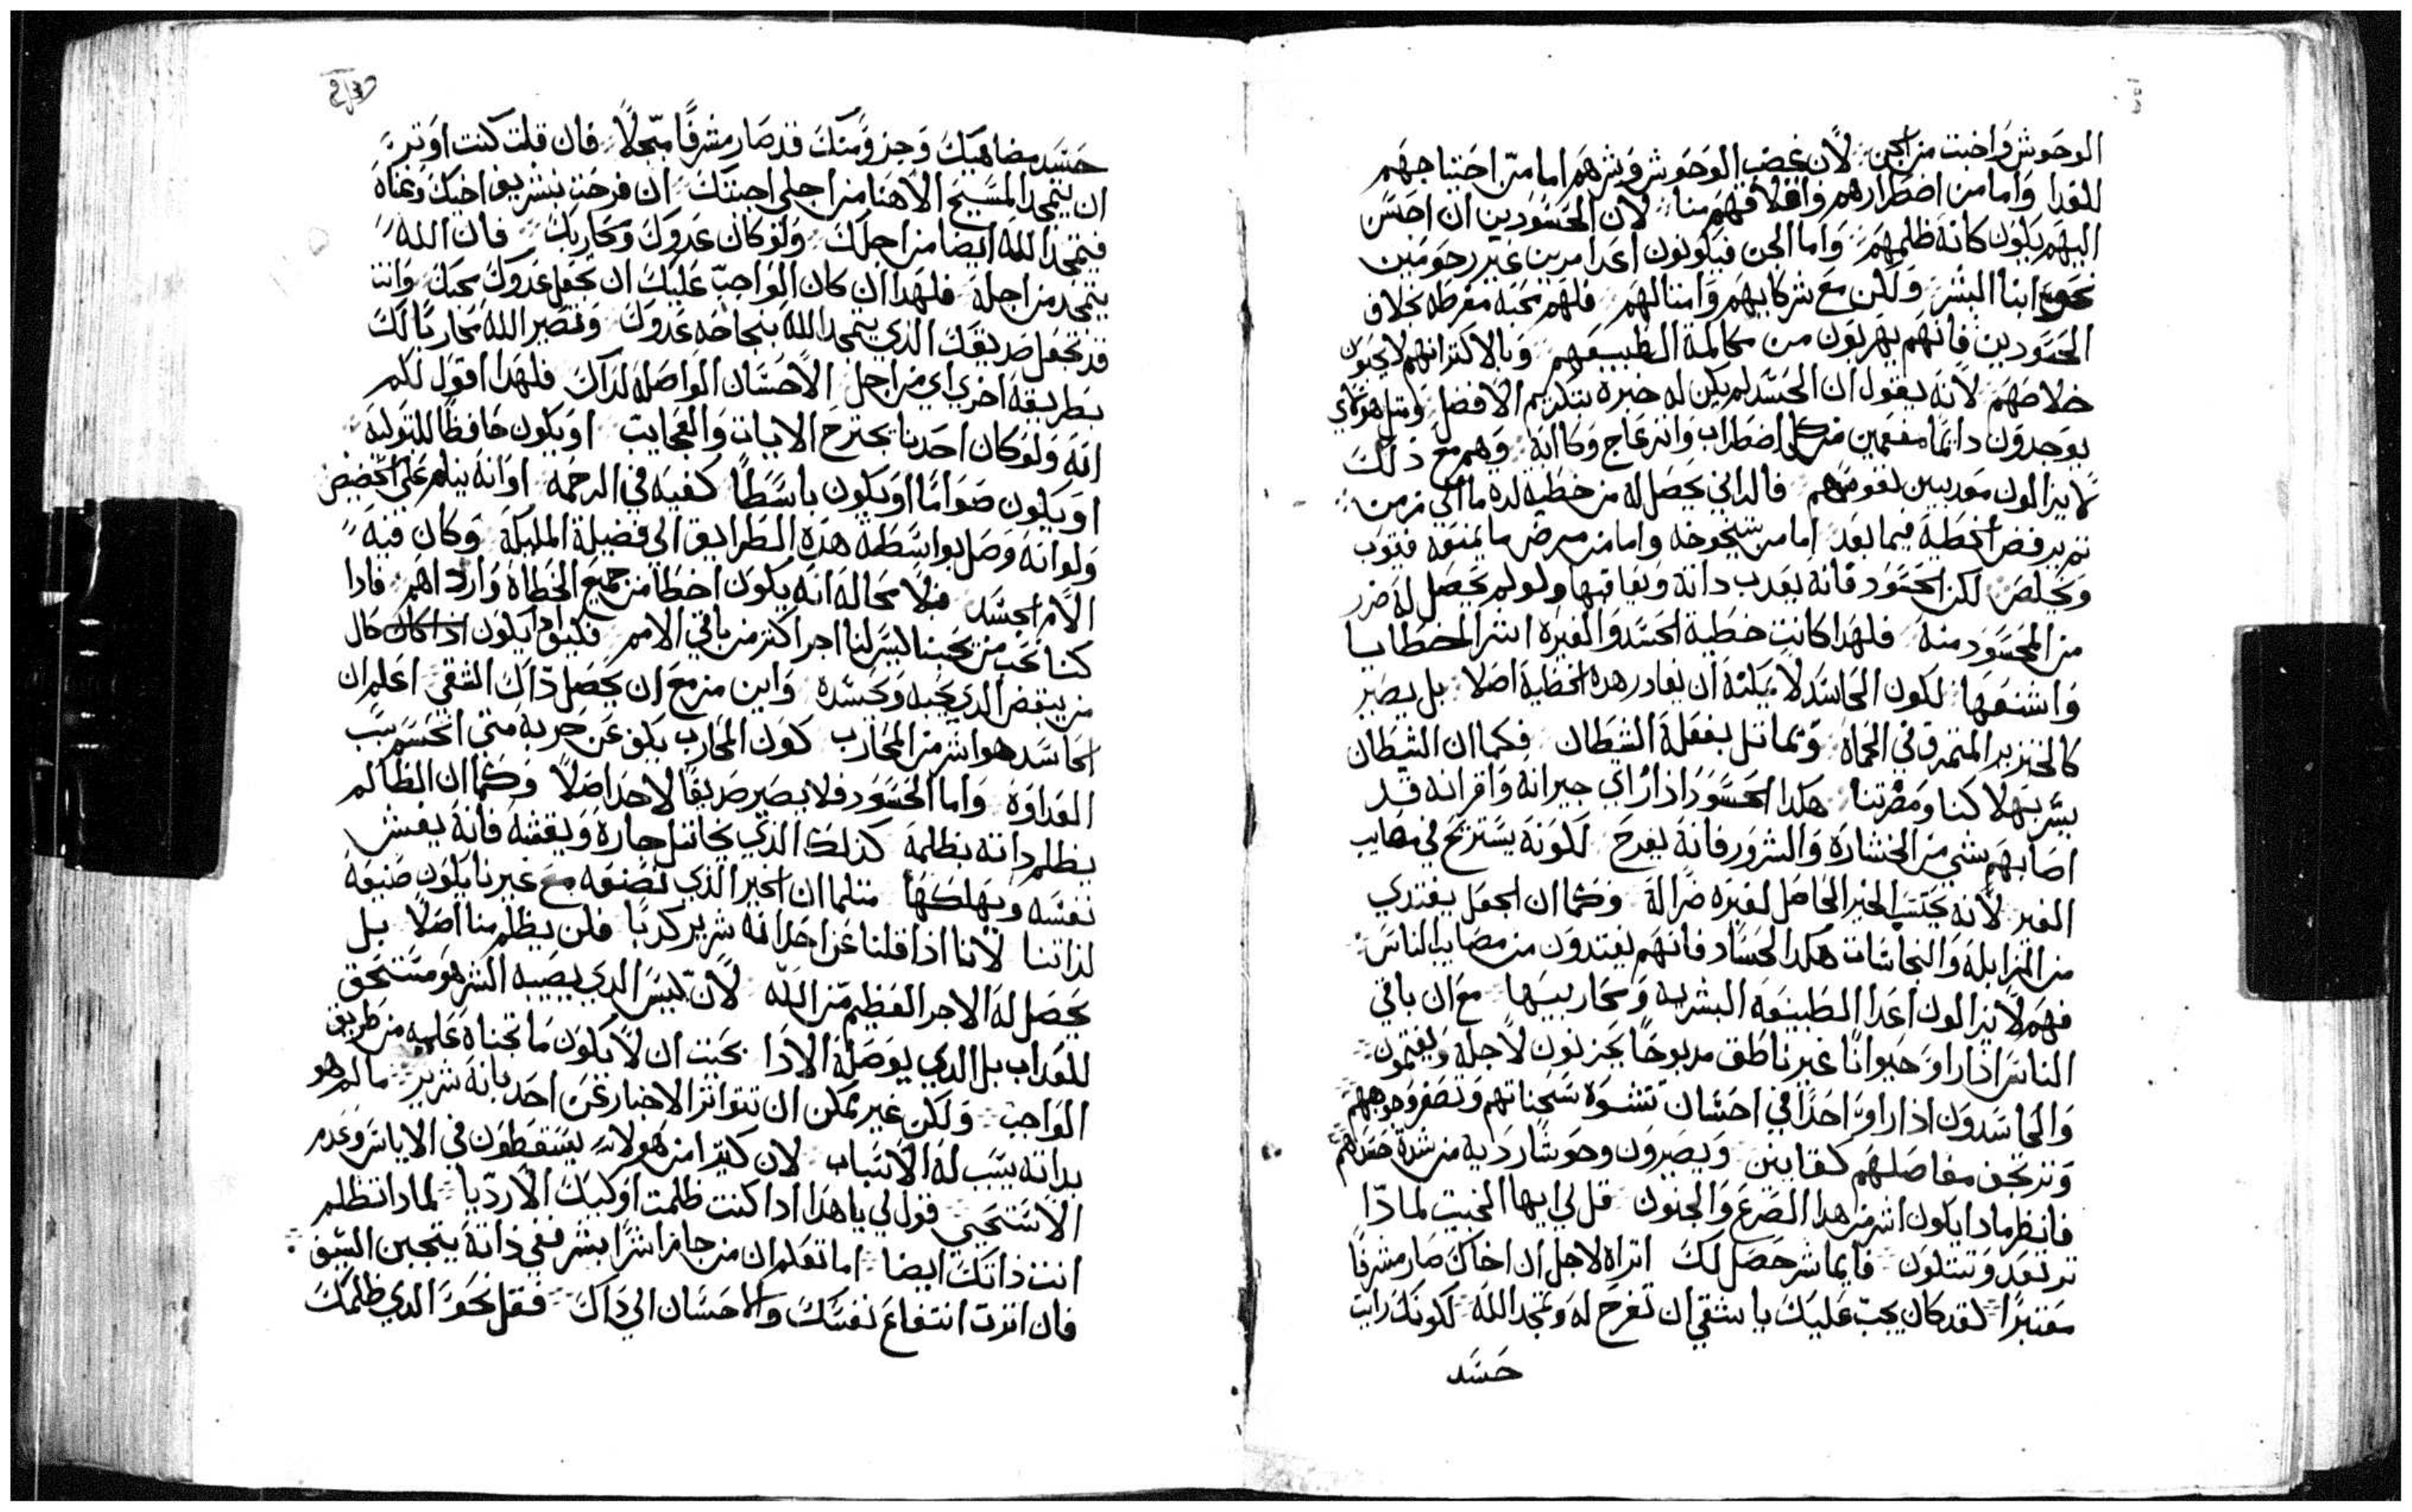 الوحوش واخبت من الجن لان غضب الوحوش وشرهم اما من احتياجهم
للغدا واما من اضطرارهم واقلاقهم منا لان الحسودين ان احسن
اليهم يكون كانه ظلمهم واما الجن فيكونون اعدا مرين غير رحومين
نحو ابنا البشر ولكن مع شركايهم وامثالهم فلهم محبة مفرطه بخلاف
الحسودين فانهم يهربون من مكالمة الطبيعهم وبالاكتر انهم لا يحبون
خلاصهم لانه يقول ان الحسد لم يكن له خبرة بتكريم الافضل ومثل هولاي
يوجدون دايما مفعمين من كل اضطراب وانزعاج وكاابة وهم مع ذلك
لا يزالون معذبين نفوسهم فالزاني يحصل له من خطيه لده ما الى زمن
تم يرفض الخطية فيما بعد اما من شيخوخه واما من مرض ما يمنعه فيتوب
ويخلص لكن الحسود فانه يعدب داته ويعاقبها ولو لم يحصل له ضرر
من المحسود منه فلهدا كانت خطية الحسد والغيرة اشر الخطايا
واشنعها لكون الحاسد لا يمكنه ان يغادر هده الخطية اصلا بل يصير
كالخنزير المتمرق في الحماة ويماتل بفعلة الشيطان فكما ان الشيطان
يسر بهلاكنا ومضرتنا هكدا الحسود اذا راي جيرانه واقرانه قد
اصابهم شي من الخسارة والشرور فانه يفرح لكونه يستريح في مصايب
الغير لانه يحتسب الخير الحاصل لغيره ضرا له وكما ان الجعل يغتدي
من المزابلة والنجاسات هكدا الحساد فانهم يغتدون من مصايب الناس
فهم لا يزالون اعدا الطبيعه البشريه ومحاربيها مع ان باقي
الناس اذا راو حيوانا غير ناطق مدبوحا يحزنون لاجله ويغتمون
والحاسدون اذا راو احدا في احسان تتشوه سحناتهم وتصفر وجوههم
وترتجف مفاصلهم كفايين ويصيرون وحوشا رديه من شدة حسدهم
فانظر مادا يكون اشر من هدا الصرع والجنون قل لي ايها الخبيت لمادا
ترتعد وتتلون فايما شر حصل لك اتراه لاجل ان اخاك صار مشرفا
معتبرا لقد كان يجب عليك يا شقي ان تفرح له وتمجد الله لكونك رايت
حسد
حسد مضاهيك وجزو منك قد صار مشرفا مبجلا فان قلت كنت اوتر
ان يتمجد المسيح الاهنا من اجلي اجبتك ان فرحت بتشريف اخيك وغناه
فيتمجد الله ايضا من اجلك ولو كان عدوك ومحاربك فان الله
يتمجد من اجله فلهدا ان كان الواجب عليك ان تجعل عدوك محبك وانت
قد تجعل صديقك الذي يتمجد الله بنجاحه عدوك وتصير الله محاربا لك
بطريقة اخري اي من اجل الاحسان الواصلة لداك فلهدا اقول لكم
انه ولو كان احدنا يجترح الايات والعجايب او يكون حافظا للبتوليه
او يكون صواما او يكون باسطا كفيه في الرحمة او انه ينام علي الحضيض
ولو انه وصل بواسطة هده الطرايق الي فضيلة المليكة وكان فيه
الام الحسد فلا محالة انه يكون اخطا من جميع الخطاة وارداهم فادا
كنا نحب من يحبنا ليس لنا اجر اكتر من باقي الامم فكيف يكون حال
من يبغض الدي يحبه ويحسده واين مزمع ان يحصل داك الشقي اعلم ان
الحاسد هو اشر من المحارب كون المحارب يكف عن حربه متي انحسم سبب
العداوة واما الحسود فلا يصير صديقا لاحد اصلا وكما ان الظالم
يظلم داته بظلمه كذلك الذي يخاتل جاره ويغشه فانه يغش
نفسه ويهلكها متلما ان الخير الذي نصنعه مع غيرنا يكون صنيعه
لداتنا لاننا اذا قلنا عن احد انه شرير كدبا فلن يظلم منا اصلا بل
يحصل له الاجر العظيم من الله لان ليس الدي يصيبه الشر هو مستحق
للعداب بل الدي يوصلة الادا بحيت ان لا يكون ما تجناه عليه من طريق
الواجب ولكن غير يمكن ان تتواتر الاخبار عن احد بانه شرير ما لم هو
بداته يسبب له الاسباب لان كتيرا من هولاي يسقطون في الاياس وعدم
الاستحي قول لي يا هدا ادا كنت ظلمت اوليك الارديا لمادا تظلم
انت داتك ايضا اما تعلم ان من جازا شرا بشر ففي داته يتجين السيف
فان اترت انتفاع نفسك والاحسان الي داك فقل نحو الدي ظلمك